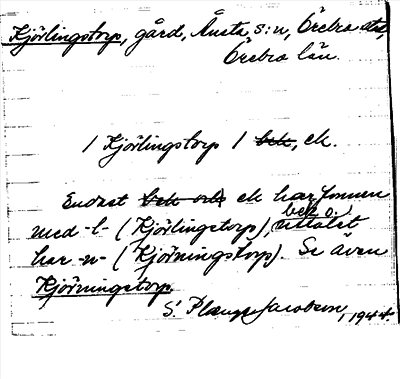 Kjörlingstorp, gård, Ånsta s:n, Örebro stad,
Örebro län.
/ Kjörlingstorp / bek, ek.
Endast bek och ek har formen
med -l- (Kjörlingstorp), bek o. uttalet
har -n- (Kjörningstorp). Se även
Kjörningstorp.
S. Jacobson, 1944.